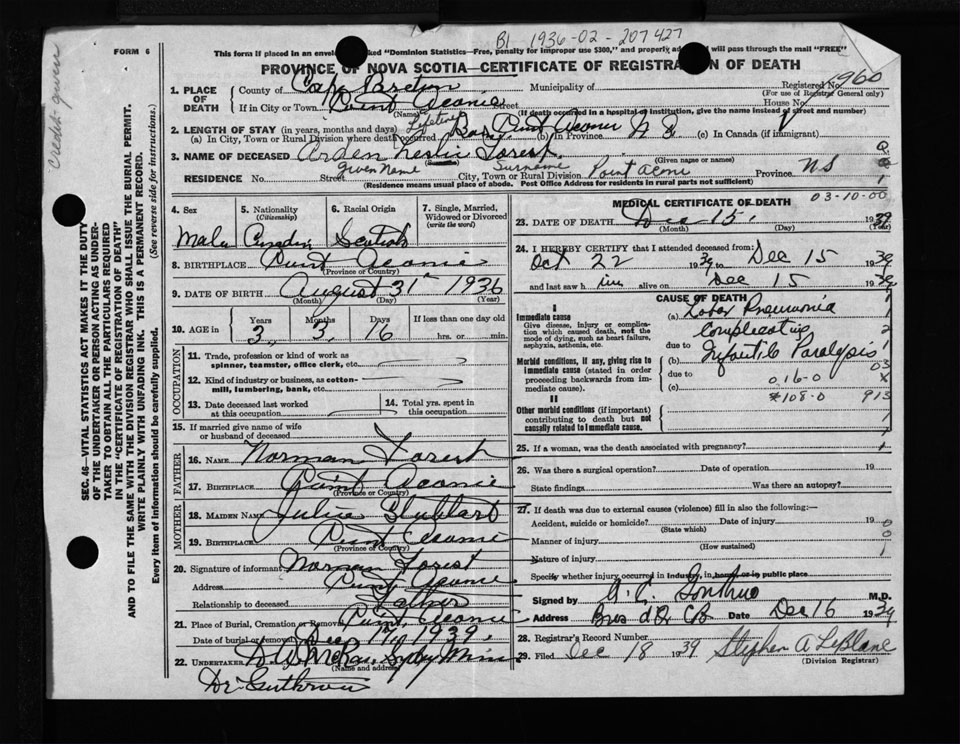 FORM 6
B1 1936-02-207427
This form if placed in an envelope marked "Dominion Statistics—Free, penalty for improper use $300," and properly addressed will pass through the mail "FREE"
PROVINCE OF NOVA SCOTIA—CERTIFICATE OF REGISTRATION OF DEATH
1. PLACE OF DEATH County of Cape Breton Municipality of Registered No. 960
(For use of Registrar General only)
If in City or Town Point Aconie Street House No.
(Name) (If death occurred in a hospital or institution, give the name instead of street and number)
2. LENGTH OF STAY (in years, months and days) Lifetime
(a) In City, Town or Rural Division where death occurred Point Aconie (b) In Province N S (c) In Canada (if immigrant)
3. NAME OF DECEASED Arden Leslie Forest
Given Name Surname (Given name or names)
RESIDENCE No. Street City, Town or Rural Division Point Aconi Province NS
(Residence means usual place of abode. Post Office Address for residents in rural parts not sufficient)
03-10-00
4. Sex 5. Nationality (Citizenship) 6. Racial Origin 7. Single, Married, Widowed or Divorced (write the word)
Male Canadian Scotish
8. BIRTHPLACE Point Aconie
(Province or Country)
9. DATE OF BIRTH August 31 1936
(Month) (Day) (Year)
10. AGE in Years Months Days If less than one day old
3, 3, 16 hrs. or min.
OCCUPATION
11. Trade, profession or kind of work as spinner, teamster, office clerk, etc.
12. Kind of industry or business, as cotton-mill, lumbering, bank, etc.
13. Date deceased last worked at this occupation 14. Total yrs. spent in this occupation
15. If married give name of wife or husband of deceased
FATHER
16. NAME Norman Forest
17. BIRTHPLACE Point Aconie
(Province or Country)
MOTHER
18. MAIDEN NAME Julia Stubbart
19. BIRTHPLACE Point Aconie
(Province or Country)
20. Signature of informant Norman Forest
Address Point Aconie
Relationship to deceased Father
21. Place of Burial, Cremation or Removal Point Aconie
Date of burial or removal Dec 17, 1939,
22. UNDERTAKER McRae, Sydny Mines
(Name and address)
MEDICAL CERTIFICATE OF DEATH
23. DATE OF DEATH Dec 15, 1939
(Month) (Day) (Year)
24. I HEREBY CERTIFY that I attended deceased from:
Oct 22 1939 to Dec 15 1939
and last saw him alive on Dec 15 1939
CAUSE OF DEATH
I
Immediate cause
Give disease, injury or complication which caused death, not the mode of dying, such as heart failure, asphyxia, asthenia, etc.
(a) Lobar Pneumonia
Complicating
due to
Morbid conditions, if any, giving rise to immediate cause (stated in order proceeding backwards from immediate cause).
(b) Infantile Paralysis
due to
(c) 016-0
#108-0 913
II
Other morbid conditions (if important) contributing to death but not causally related to immediate cause.
25. If a woman, was the death associated with pregnancy?
26. Was there a surgical operation? Date of operation 19
State findings Was there an autopsy?
27. If death was due to external causes (violence) fill in also the following:—
Accident, suicide or homicide? Date of injury 19
(State which)
Manner of injury
(How sustained)
Nature of injury
Specify whether injury occurred in industry, in home, or in public place
Signed by M.D.
Address Bras d'Or CB Date Dec 16 1939
28. Registrar's Record Number
29. Filed Dec 18 1939 Stephen A LeBlanc
(Division Registrar)
SEC. 46—VITAL STATISTICS ACT MAKES IT THE DUTY OF THE UNDERTAKER OR PERSON ACTING AS UNDERTAKER TO OBTAIN ALL THE PARTICULARS REQUIRED IN THE "CERTIFICATE OF REGISTRATION OF DEATH" AND TO FILE THE SAME WITH THE DIVISION REGISTRAR WHO SHALL ISSUE THE BURIAL PERMIT.
WRITE PLAINLY WITH UNFADING INK. THIS IS A PERMANENT RECORD.
Every item of information should be carefully supplied. (See reverse side for instructions.)
Credit given